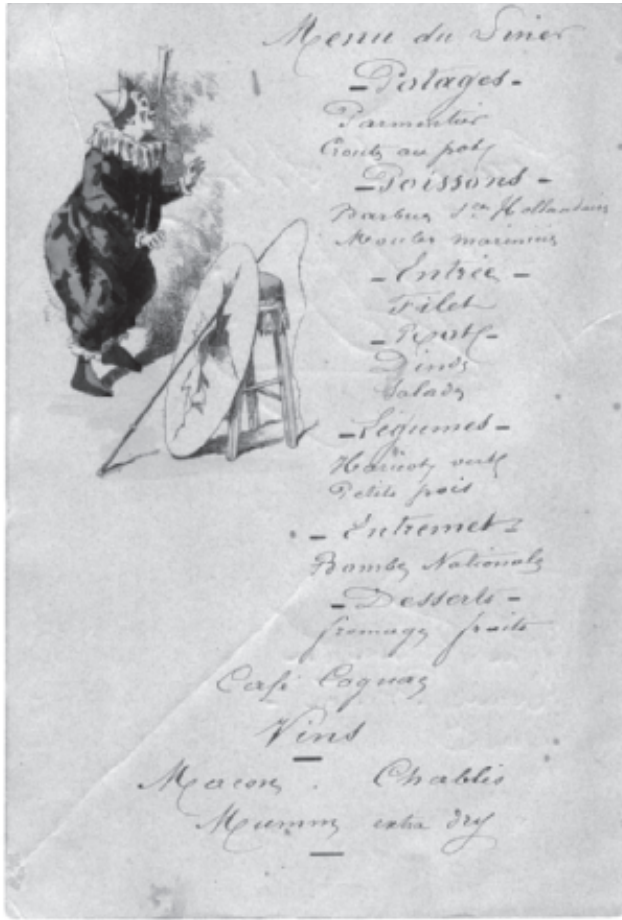 Menu du Diner
- Potages -
Parmentier
Croute au pot
- Poissons -
Barbue Sce Hollandaise
Moules marinière
- Entrée -
Filet
- Rooti -
Dinde
Salade
- Légumes -
Haricots verts
Petits pois
- Entremets
Bombe Nationale
- Desserts -
fromage fruits
Café Cognac
Vins
Macon . Chablis
Mumm extra dry